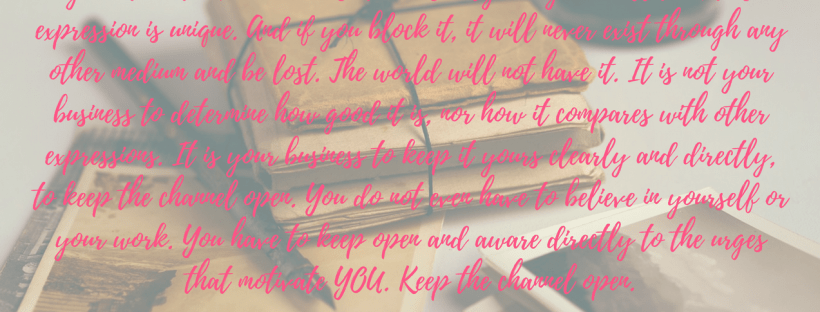 expression is unique. And if you block it, it will never exist through any
other medium and be lost. The world will not have it. It is not your
business to determine how good it is, nor how it compares with other
expressions. It is your business to keep it yours clearly and directly,
to keep the channel open. You do not even have to believe in yourself or
your work. You have to keep open and aware directly to the urges
that motivate YOU. Keep the channel open.